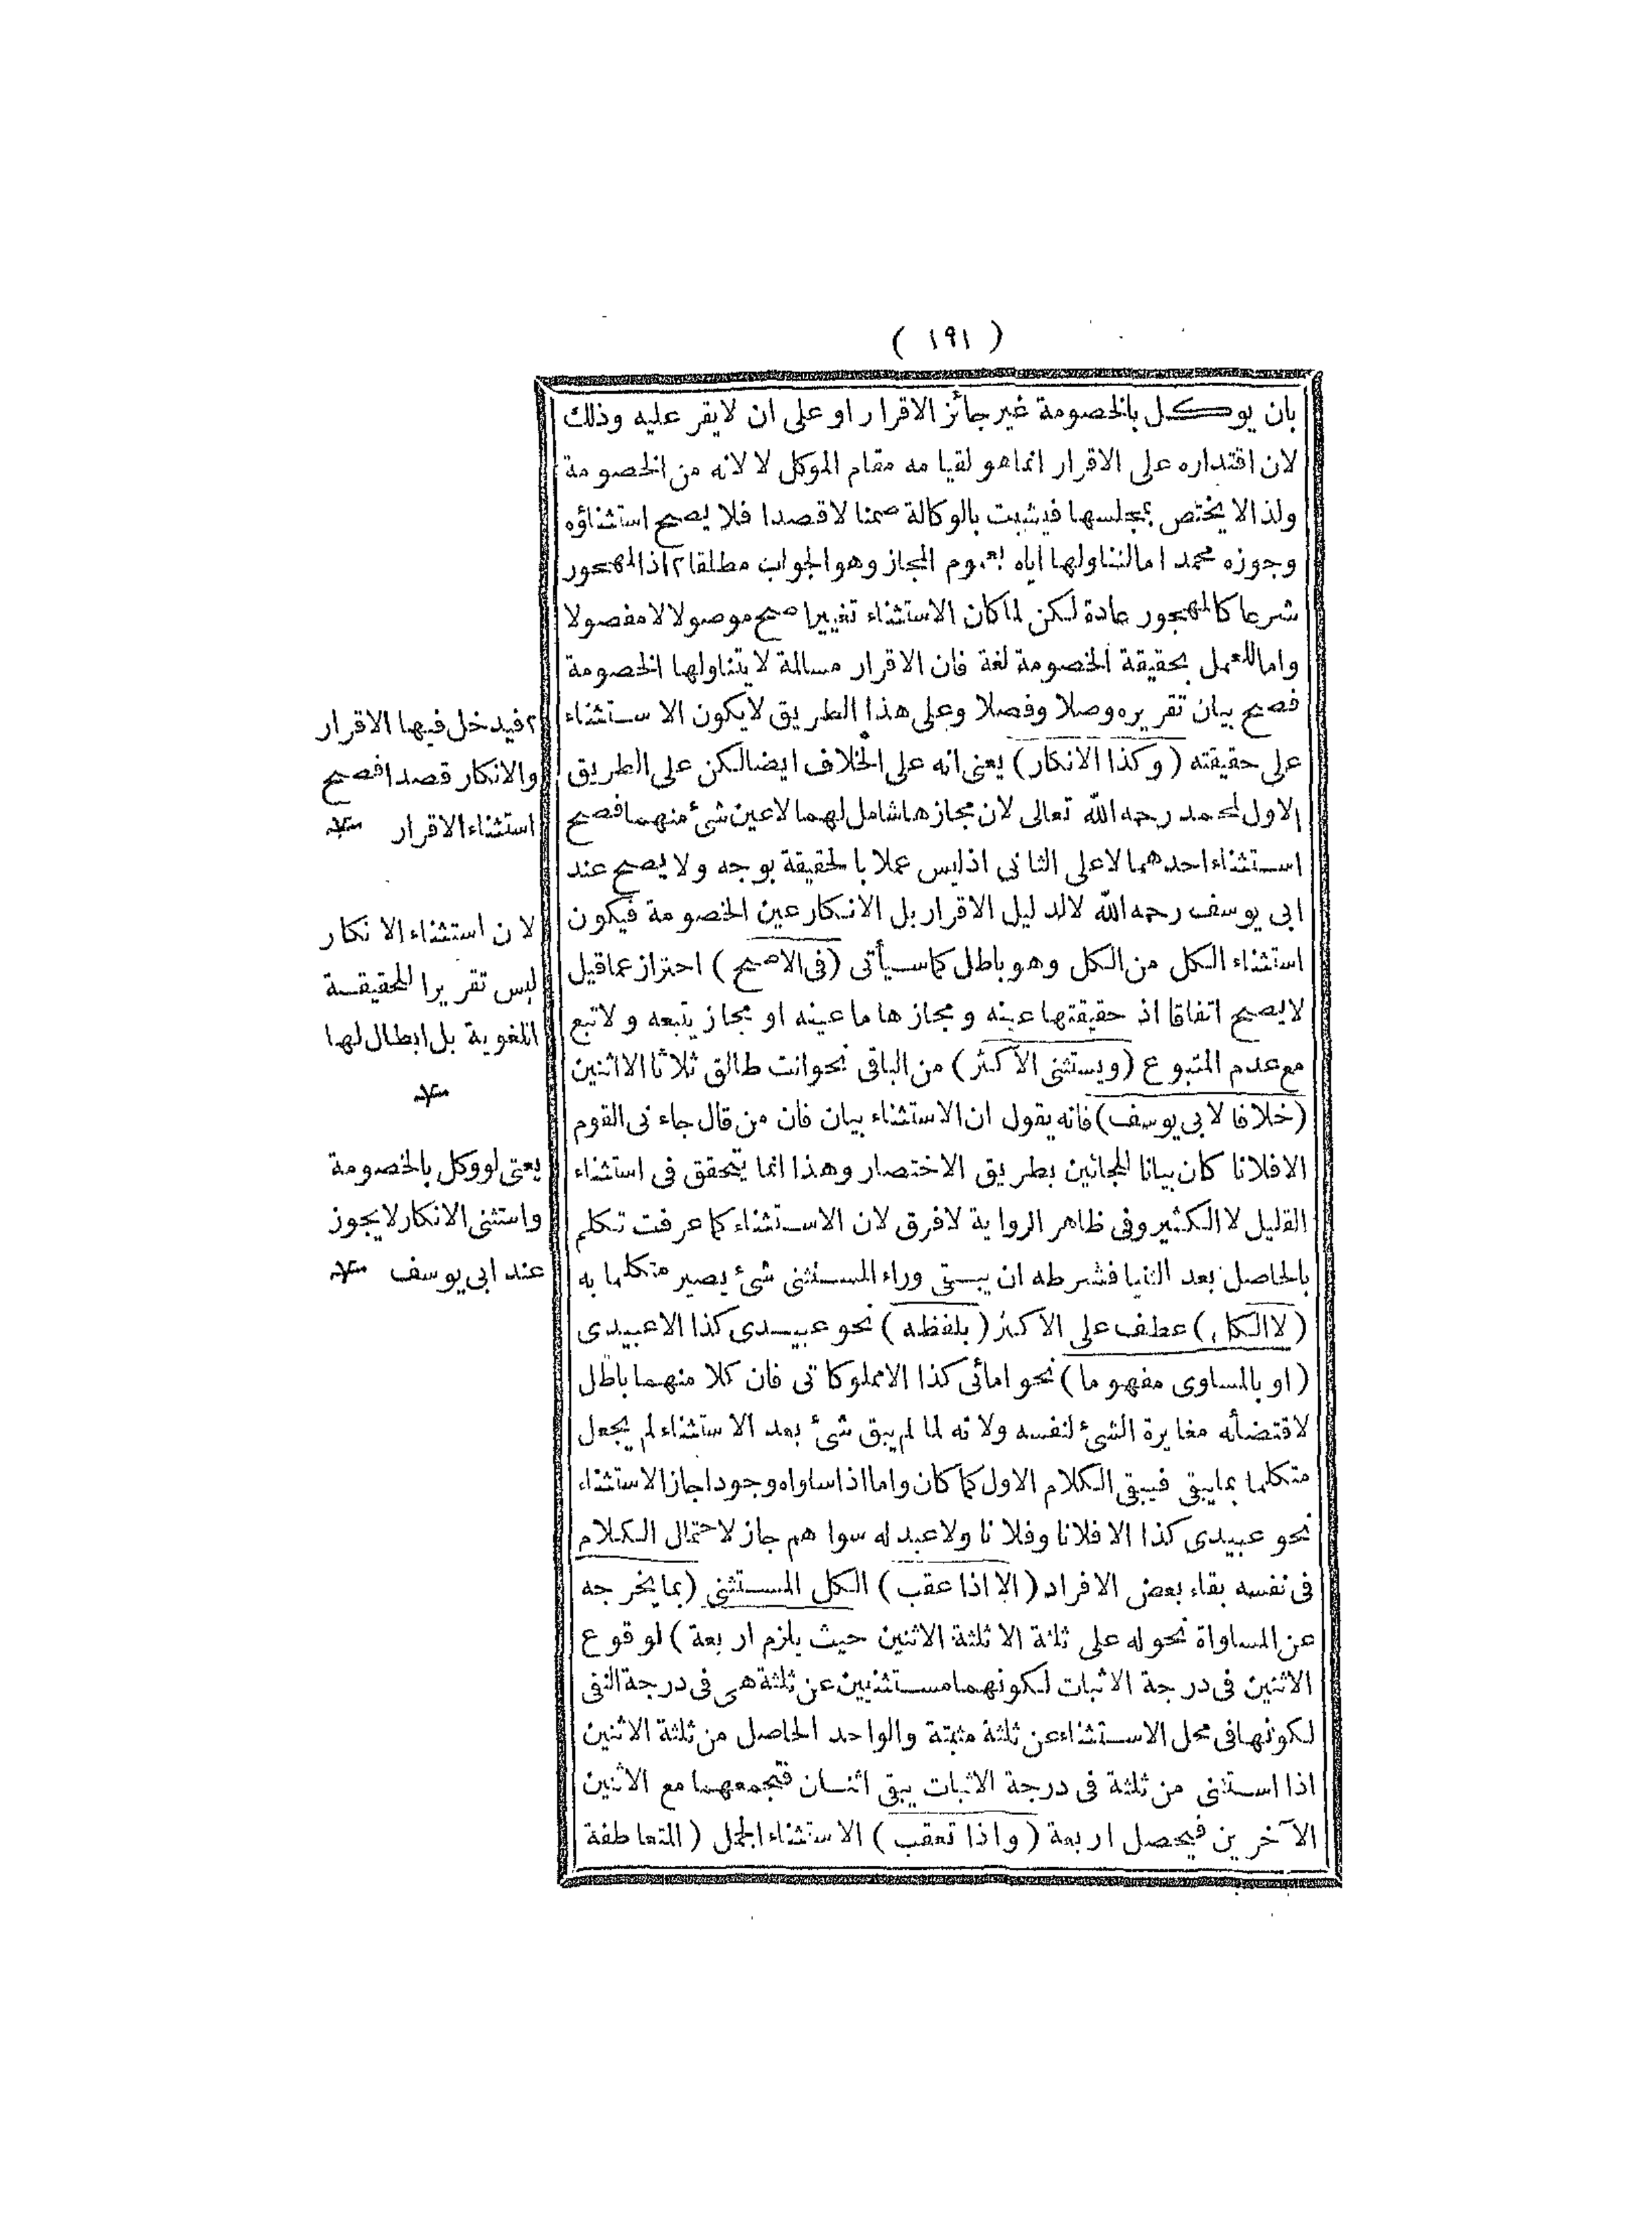 ( ١٩١ )
بان يوكل بالخصومة غير جائز الاقرار او على ان لايقر عليه وذلك
لان اقتداره على الاقرار انماهو لقيامه مقام الموكل لا لانه من الخصومة
ولذا لا يختص بمجلسها فيثبت بالوكالة ضمنا لاقصدا فلا يصح استثناؤه
وجوزه محمد اما لتناولها اياه بعموم المجاز وهو الجواب مطلقا ٢ اذ المهجور
شرعا كالمهجور عادة لكن لما كان الاستثناء تغييرا صح موصولا لا مفصولا
واما للعمل بحقيقة الخصومة لغة فان الاقرار مسالة لا يتناولها الخصومة
فصح بيان تقريره وصلا وفصلا وعلى هذا الطريق لا يكون الاستثناء
على حقيقته ( وكذا الانكار ) يعنى انه على الخلاف ايضا لكن على الطريق
الاول لمحمد رحمه الله تعالى لان مجازها شامل لهما لاعين شئ منهما فصح
استثناء احدهما لا على الثانى اذ ليس عملا بالحقيقة بوجه ولا يصح عند
ابى يوسف رحمه الله لا لدليل الاقرار بل الانكار عين الخصومة فيكون
استثناء الكل من الكل وهو باطل كما سيأتى ( فى الاصح ) احتراز عما قيل
لا يصح اتفاقا اذ حقيقتها عينه ومجازها ما عينه او مجاز يتبعه ولا تبع
مع عدم المتبوع ( ويستثنى الاكثر ) من الباقى نحو انت طالق ثلاثا الا اثنين
( خلافا لابى يوسف ) فانه يقول ان الاستثناء بيان فان من قال جاءنى القوم
الا فلانا كان بيانا للجائين بطريق الاختصار وهذا انما يتحقق فى استثناء
القليل لا الكثير وفى ظاهر الرواية لا فرق لان الاستثناء كما عرفت تكلم
بالحاصل بعد الثنيا فشرطه ان يبقى وراء المستثنى شئ يصير متكلما به
( لا الكل ) عطف على الاكثر ( بلفظه ) نحو عبيدى كذا الا عبيدى
( او بالمساوى مفهوما ) نحو امائى كذا الا مملوكاتى فان كلا منهما باطل
لاقتضأنه مغايرة الشئ لنفسه ولانه لما لم يبق شئ بعد الاستثناء لم يجعل
متكلما بمايبقى فيبقى الكلام الاول كما كان واما اذا ساواه وجودا جاز الاستثناء
نحو عبيدى كذا الا فلانا وفلانا ولا عبد له سواهم جاز لاحتمال الكلام
فى نفسه بقاء بعض الافراد ( الا اذا عقب ) الكل المستثنى ( بما يخرجه
عن المساواة نحو له على ثلثة الا ثلثة الا اثنين حيث يلزم اربعة ) لوقوع
الاثنين فى درجة الاثبات لكونهما مستثنيين عن ثلثة هى فى درجة النفى
لكونها فى محل الاستثناء عن ثلثة مثبتة والواحد الحاصل من ثلثة الا اثنين
اذا استثنى من ثلثة فى درجة الاثبات يبقى اثنان فتجمعهما مع الاثنين
الآخرين فيحصل اربعة ( واذا تعقب ) الاستثناء الجمل ( المتعاطفة
٢ فيدخل فيها الاقرار
والانكار قصدا فصح
استثناء الاقرار
لان استثناء الانكار
ليس تقريرا للحقيقة
اللغوية بل ابطال لها
يعنى لو وكل بالخصومة
واستثنى الانكار لا يجوز
عند ابى يوسف